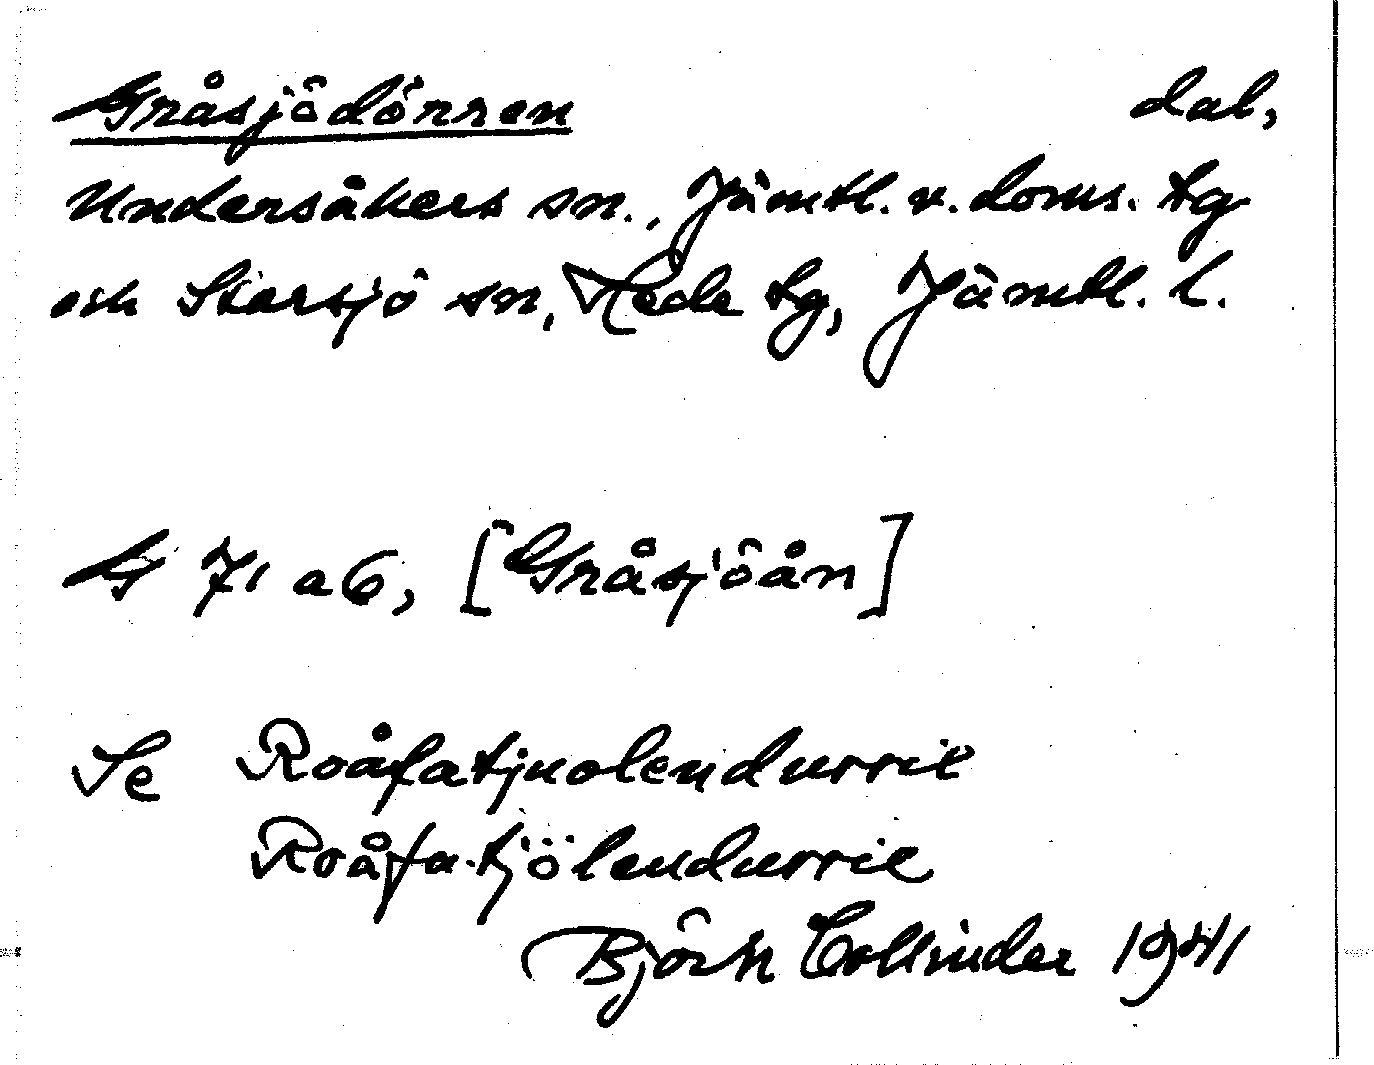 Gråsjödörren dal,
Undersåkers sn., Jämtl. v. doms. tg
och Storsjö sn, Hede tg, Jämtl. l.
G 71 a 6, [Gråsjöån]
Se Roåfatjuolendurrie
Roåfa-tjölendurrie
Björn Collinder 1941